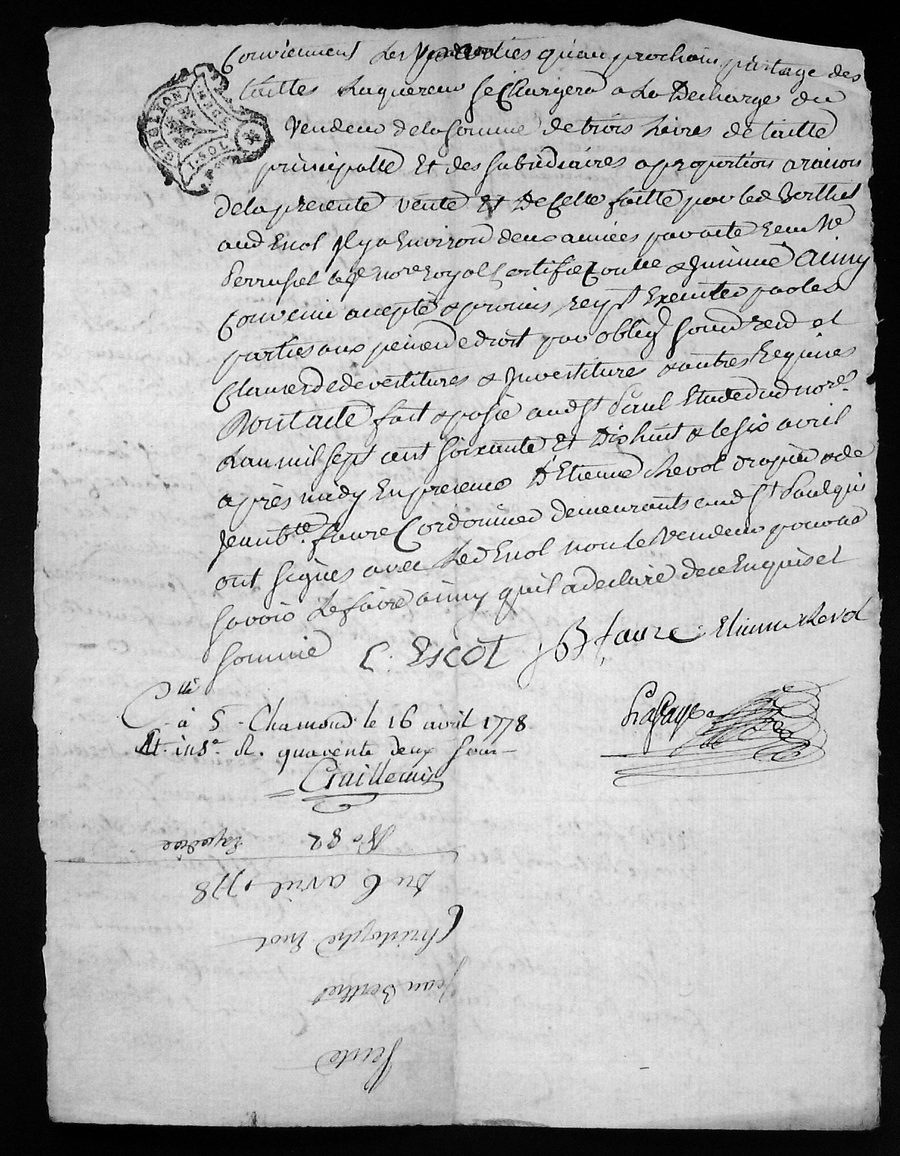 Conviennent Les parties qu'au prochain partage des
tailles Laquereur se Chargera a La Decharge du
GEN LYON
1 SOL
Vendeur de la somme de trois Livres de taille
principalle Et des subsidiaires a proportion a raison
de la presente vente Et De Celle faitte par led Berthet
aud Escot Il y a Environ deux années par acte receu Me
no.re royal Certifié Controllé & Insinué ainsy
Convenu accepté & promis Executer par les
parties aux peines de droit par oblig
Clauses de devestitures & Investiture & autres Requises
Dont acte fait & passé aud St Paul Etude dud no.re
L'an mil sept cent soixante Et Dix huit & le six avril
après midy En presence D'Etienne Revol & de
Jean b.te faure Cordonnier demeurants aud St Paul qui
ont signes avec led Escot non le Vendeur pour ne
savoir Le faire ainsy qu'il a declaré de ce Enquis et
Sommé C. Escot JB faure Etienne Revol
C.lle
à St Chamond le 16 avril 1778
Et ins.é R. quarente deux sous
No 82
Du 6 avril 1778
Christophe Escot
Jean Berthet
Vente